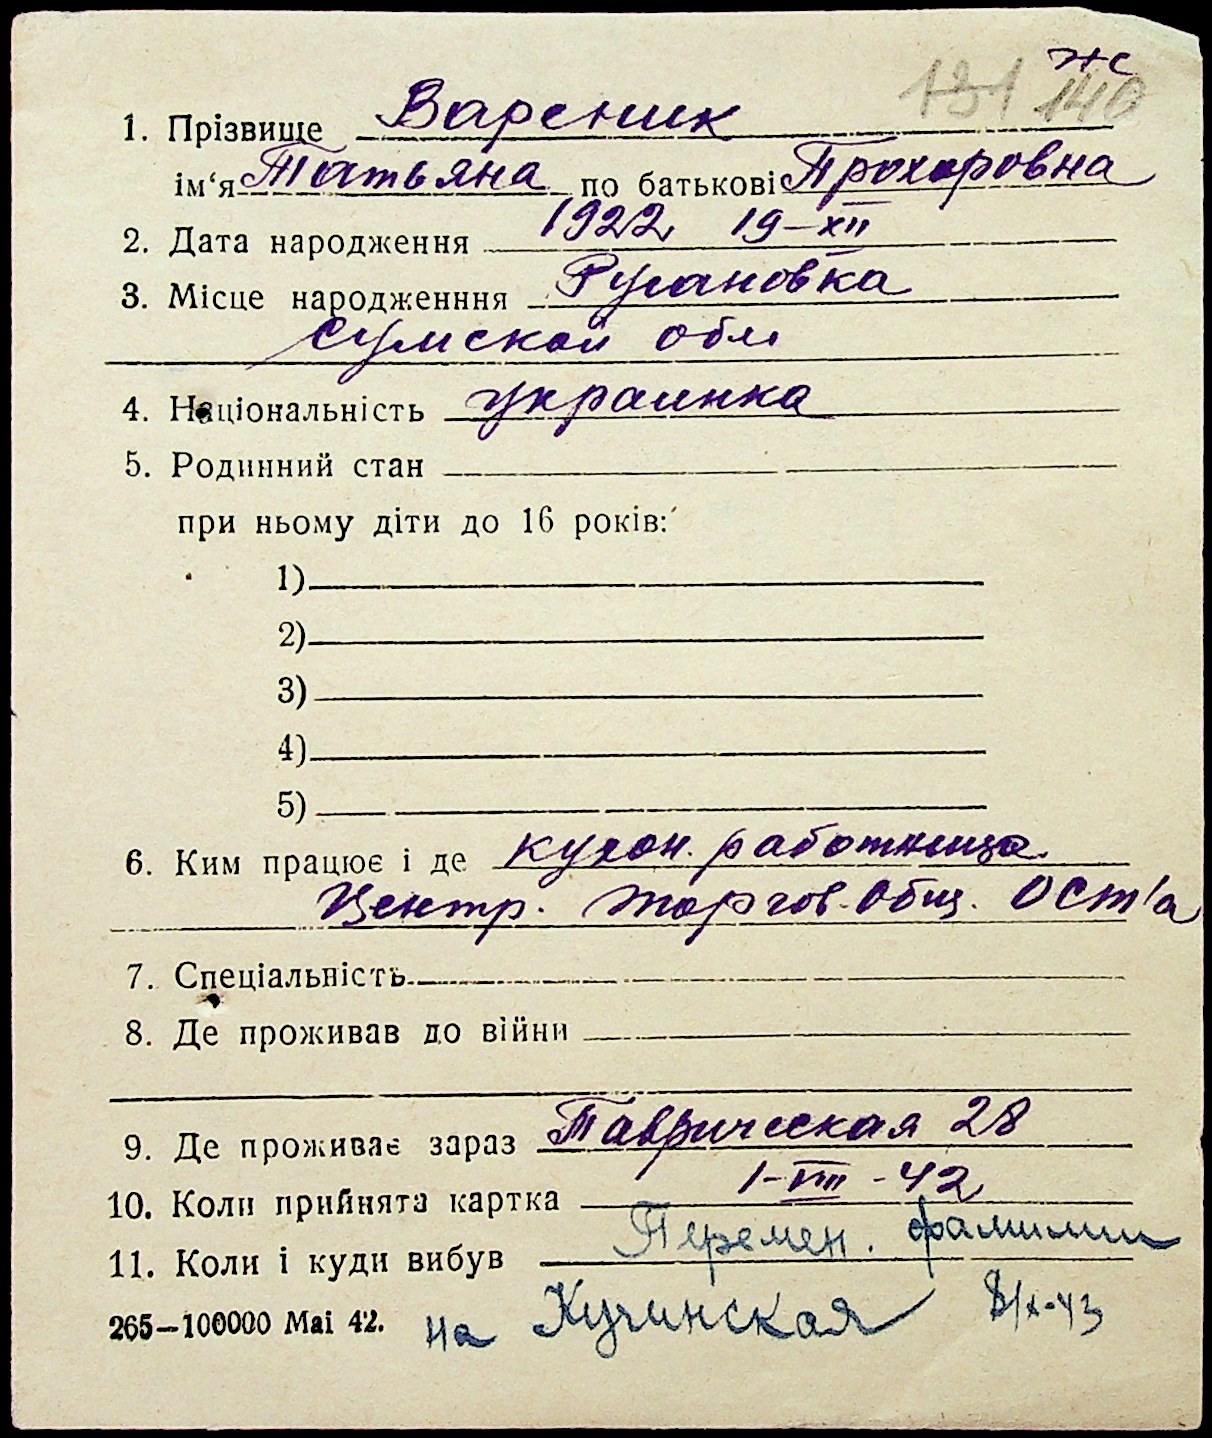 жс
131 140
1. Прізвище Вареник
ім‘я Татьяна по батькові Прохоровна
2. Дата народження 1922 19-XII
3. Місце народженння Русановка
Сумской обл
4. Національність украинка
5. Родинний стан
при ньому діти до 16 років:
1)
2)
3)
4)
5)
6. Ким працює і де кухон. работница
Центр. торгов. Общ. Ост'а
7. Спеціальність
8. Де проживав до війни
9. Де проживає зараз Таврическая 28
10. Коли прийнята картка 1-VIII-42
11. Коли і куди вибув Перемен. фамилии
265—100000 Маі 42. на Кучинская 8/X-43